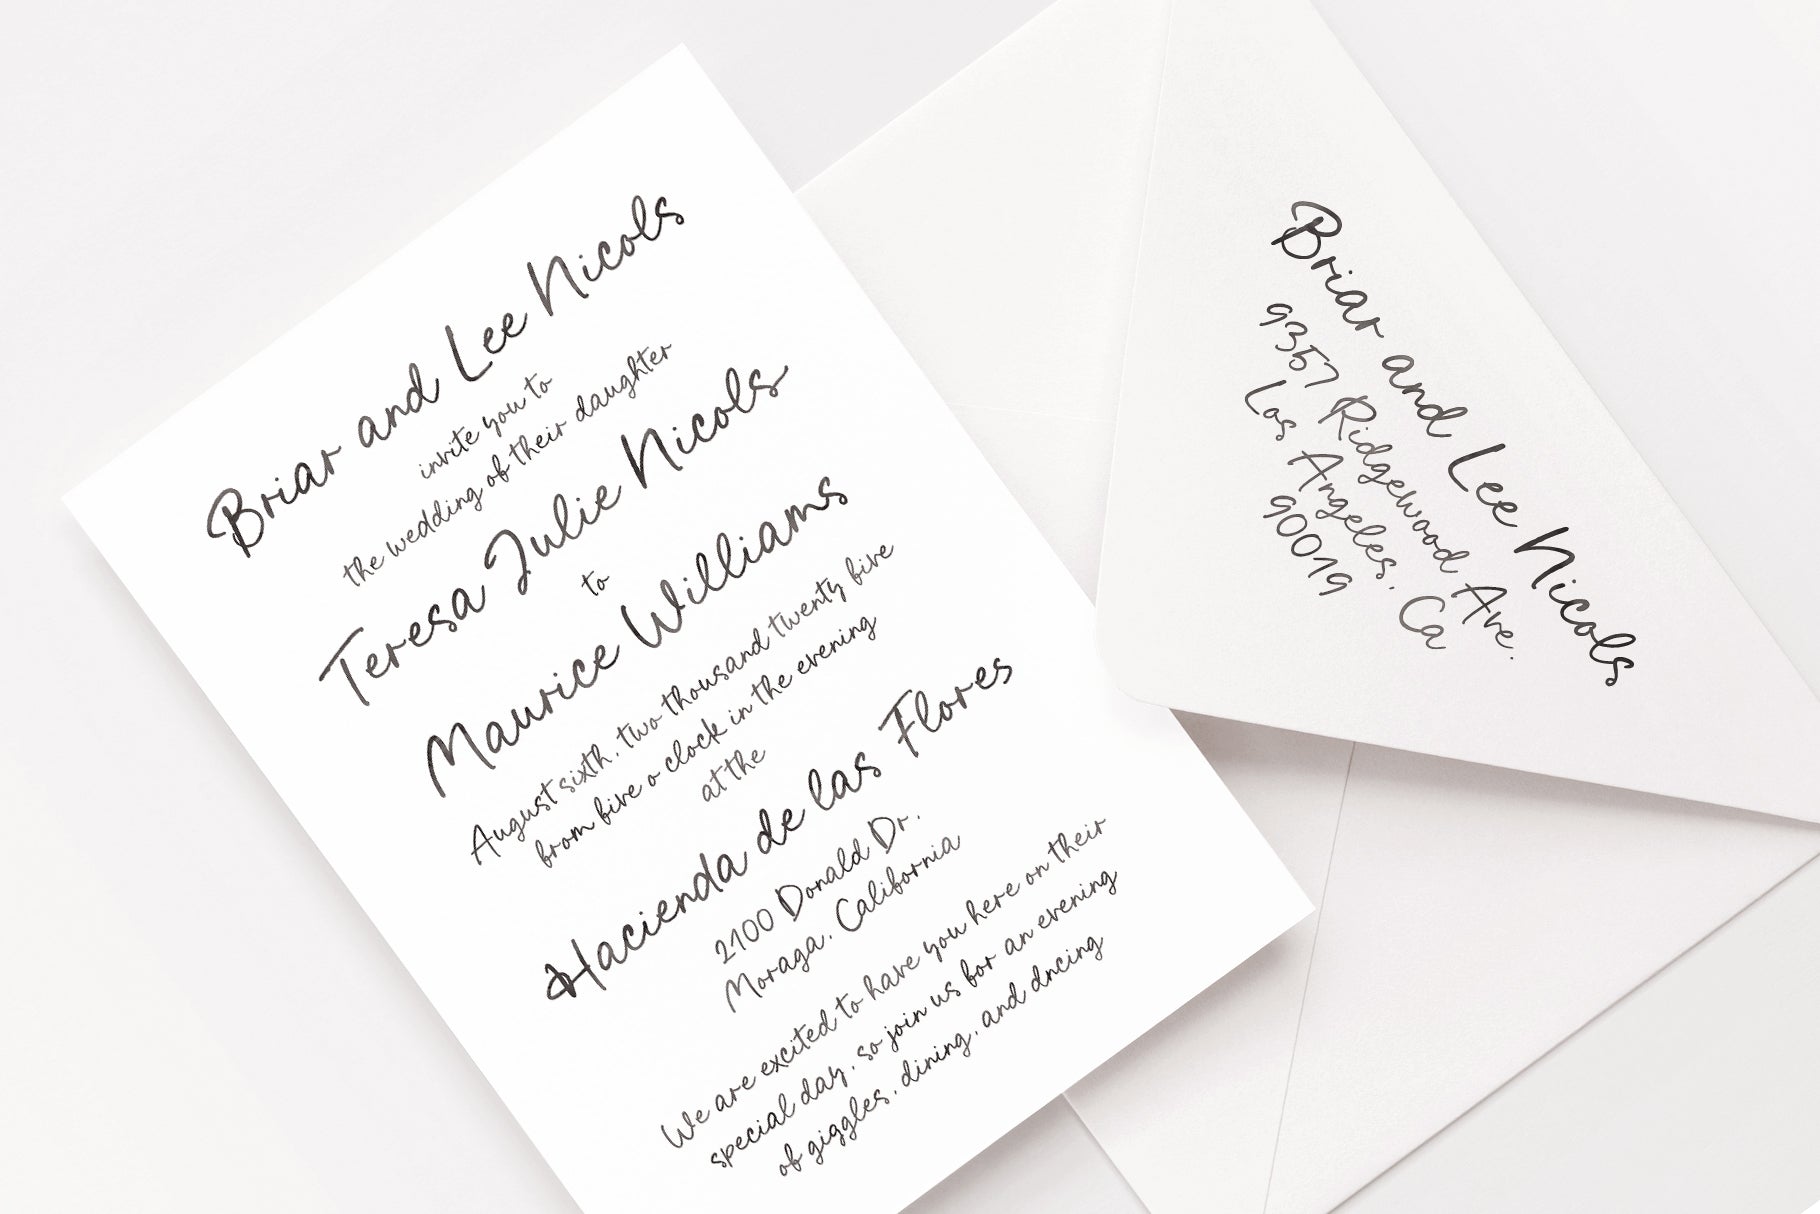 Briar and Lee Nicols
invite you to
the wedding of their daughter
Teresa Julie Nicols
to
Maurice Williams
August sixth, two thousand twenty five
from five o clock in the evening
at the
Hacienda de las Flores
2100 Donald Dr.
Moraga, California
We are excited to have you here on their
special day, so join us for an evening
of giggles, dining, and dncing
Briar and Lee Nicols
9357 Ridgewood Ave.
Los Angeles, Ca
90019